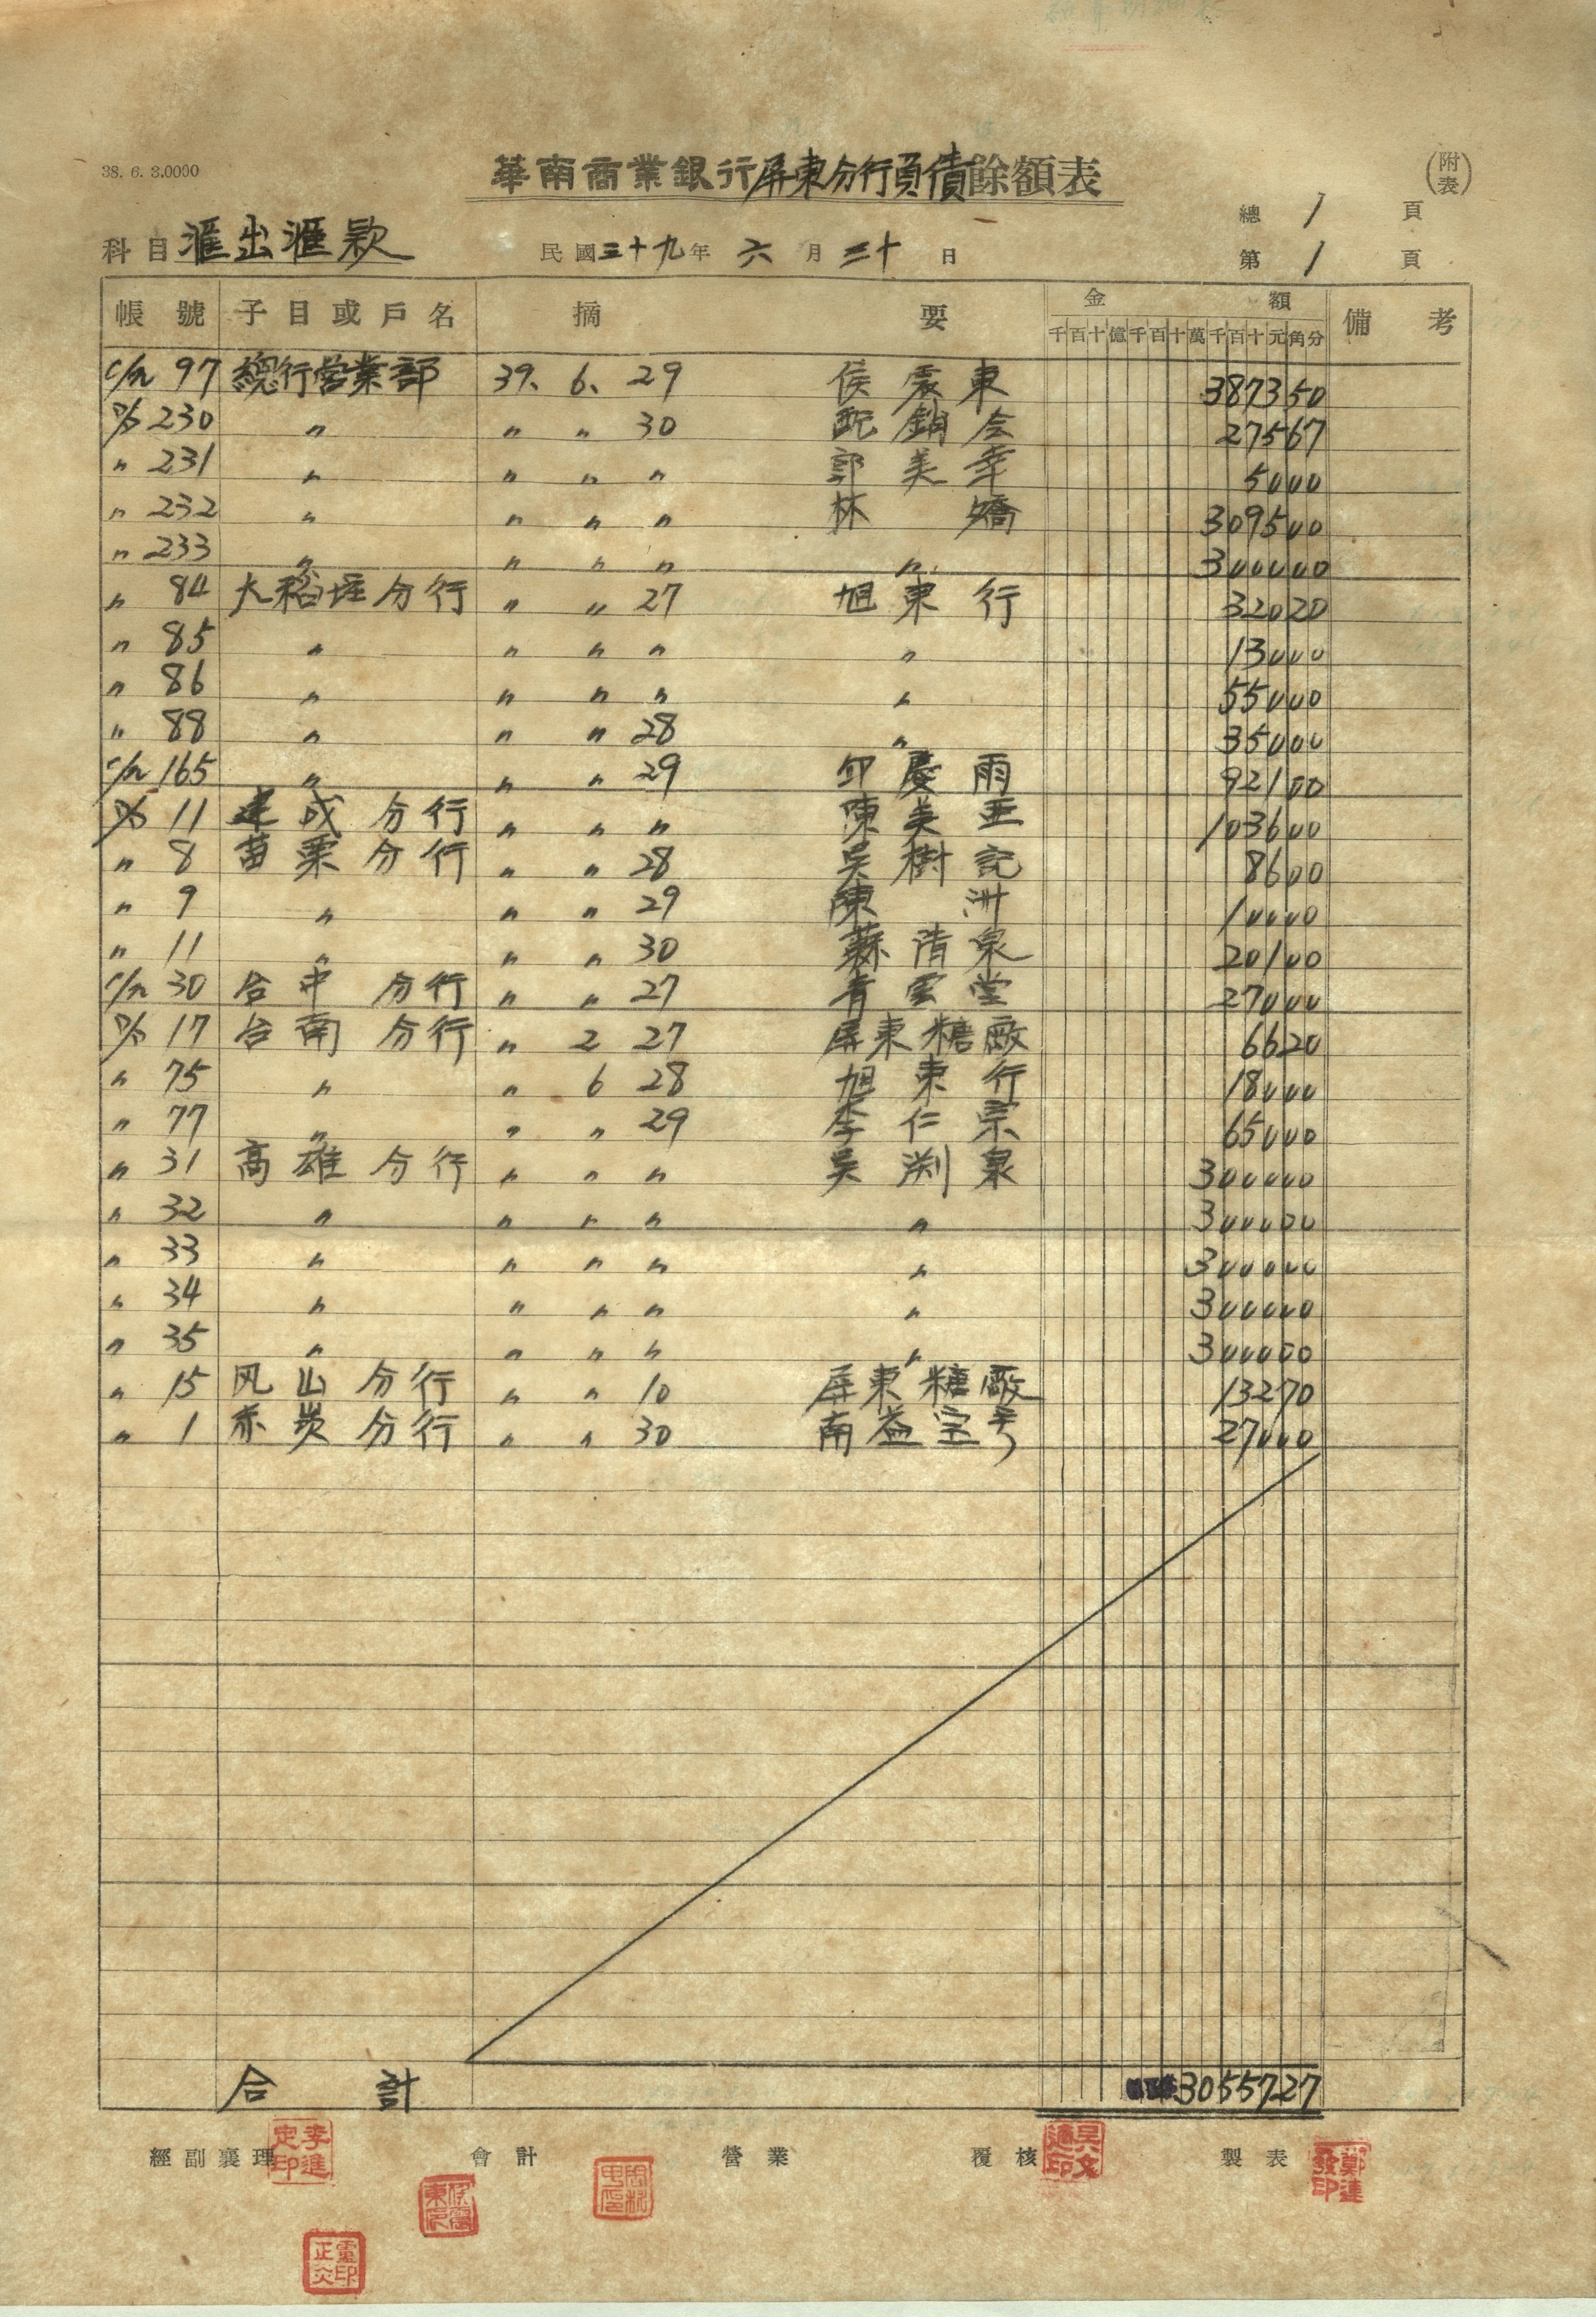 38. 6. 3.0000
華南商業銀行屏東分行負債餘額表
(附表)
總 1 頁
科目 滙出滙款 民國三十九年 六 月 三十 日 第 1 頁
帳號 子目或戶名 摘要 金額 備考
千百十億千百十萬千百十元角分
C/N 97 總行営業部 39. 6. 29 侯震東 387350
D/D 230 〃 〃 〃 30 配銷会 27567
〃 231 〃 〃 〃 〃 郭美幸 5000
〃 232 〃 〃 〃 〃 林嬌 309500
〃 233 〃 〃 〃 〃 〃 300000
〃 84 大稻埕分行 〃 〃 27 旭東行 32020
〃 85 〃 〃 〃 〃 〃 13000
〃 86 〃 〃 〃 〃 〃 55000
〃 88 〃 〃 〃 28 〃 35000
C/N 165 〃 〃 〃 29 雨 92100
D/D 11 建成分行 〃 〃 〃 陳美亜 103600
〃 8 苗栗分行 〃 〃 28 吳樹記 8600
〃 9 〃 〃 〃 29 陳洲 10000
〃 11 〃 〃 〃 30 蘇清泉 20100
C/N 30 台中分行 〃 〃 27 青雲堂 27000
D/D 17 台南分行 〃 2 27 屏東糖廠 6620
〃 75 〃 〃 6 28 旭東行 18000
〃 77 〃 〃 〃 29 李仁宗 65000
〃 31 高雄分行 〃 〃 〃 吳渕泉 300000
〃 32 〃 〃 〃 〃 〃 300000
〃 33 〃 〃 〃 〃 〃 300000
〃 34 〃 〃 〃 〃 〃 300000
〃 35 〃 〃 〃 〃 〃 300000
〃 15 风山分行 〃 〃 10 屏東糖廠 13270
〃 1 赤崁分行 〃 〃 30 南益宝号 27000
合計 3055727
經副襄理 會計 營業 覆核 製表
李進定印
侯震東印
鄭連發印